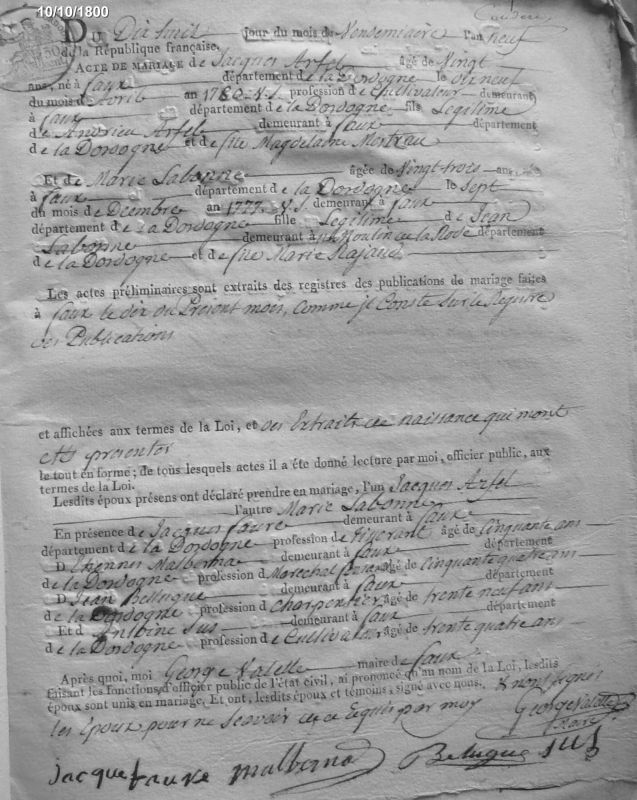 10/10/1800
DU Dix huit jour du mois de Vendemiaire l'an neuf
de la République française.
ACTE DE MARIAGE de Jacques Arfel âgé de Vingt
ans, né à faux département de la Dordogne le dix neuf
du mois d'Avril an 1780 V.S. profession de Cultivateur demeurant
à faux département de la Dordogne fils Legitime
de Andrieu Arfel demeurant à faux département
de la Dordogne et de feue Magdelaine
Et de Marie Labonne âgée de Vingt trois ans
à faux département de la Dordogne le Sept
du mois de Decembre an 1777. V.S. demeurant à faux
département de la Dordogne fille Legitime de Jean
Labonne demeurant à Moulin de la Rode département
de la Dordogne et de feue Marie
Les actes préliminaires sont extraits des registres des publications de mariage faites
à faux le dix du Present mois, Comme il Conste sur le Registre
des Publications
et affichées aux termes de la Loi, et des Extraits de naissance qui mont
ette presenter
le tout en forme; de tous lesquels actes il a été donné lecture par moi, officier public, aux
termes de la Loi.
Lesdits époux présens ont déclaré prendre en mariage, l'un Jacques Arfel
l'autre Marie Labonne
En présence de Jacques faure demeurant à faux
département de la Dordogne profession de âgé de Cinquante ans
D. Etienne Malberna demeurant à faux département
de la Dordogne profession d Marechal âgé de Cinquante quatre ans
D. Jean Bellugue demeurant à faux département
de la Dordogne profession d Charpentier âgé de trente neuf ans
Et d Antoine Sus demeurant à faux département
de la Dordogne profession d e Cultivateur âgé de trente quatre ans
Après quoi, moi George Valette maire de faux
faisant les fonctions d'officier public de l'état civil, ai prononcé qu'au nom de la Loi, lesdits
époux sont unis en mariage. Et ont, lesdits époux et témoins, signé avec nous. & non signer
les Epoux pour ne Scavoir de ce Equis par moy George Valette
Maire
jacque faure malberna Belugue SUS